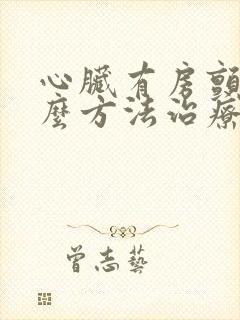 心臟有房顫
麼方法治療
曾志藝